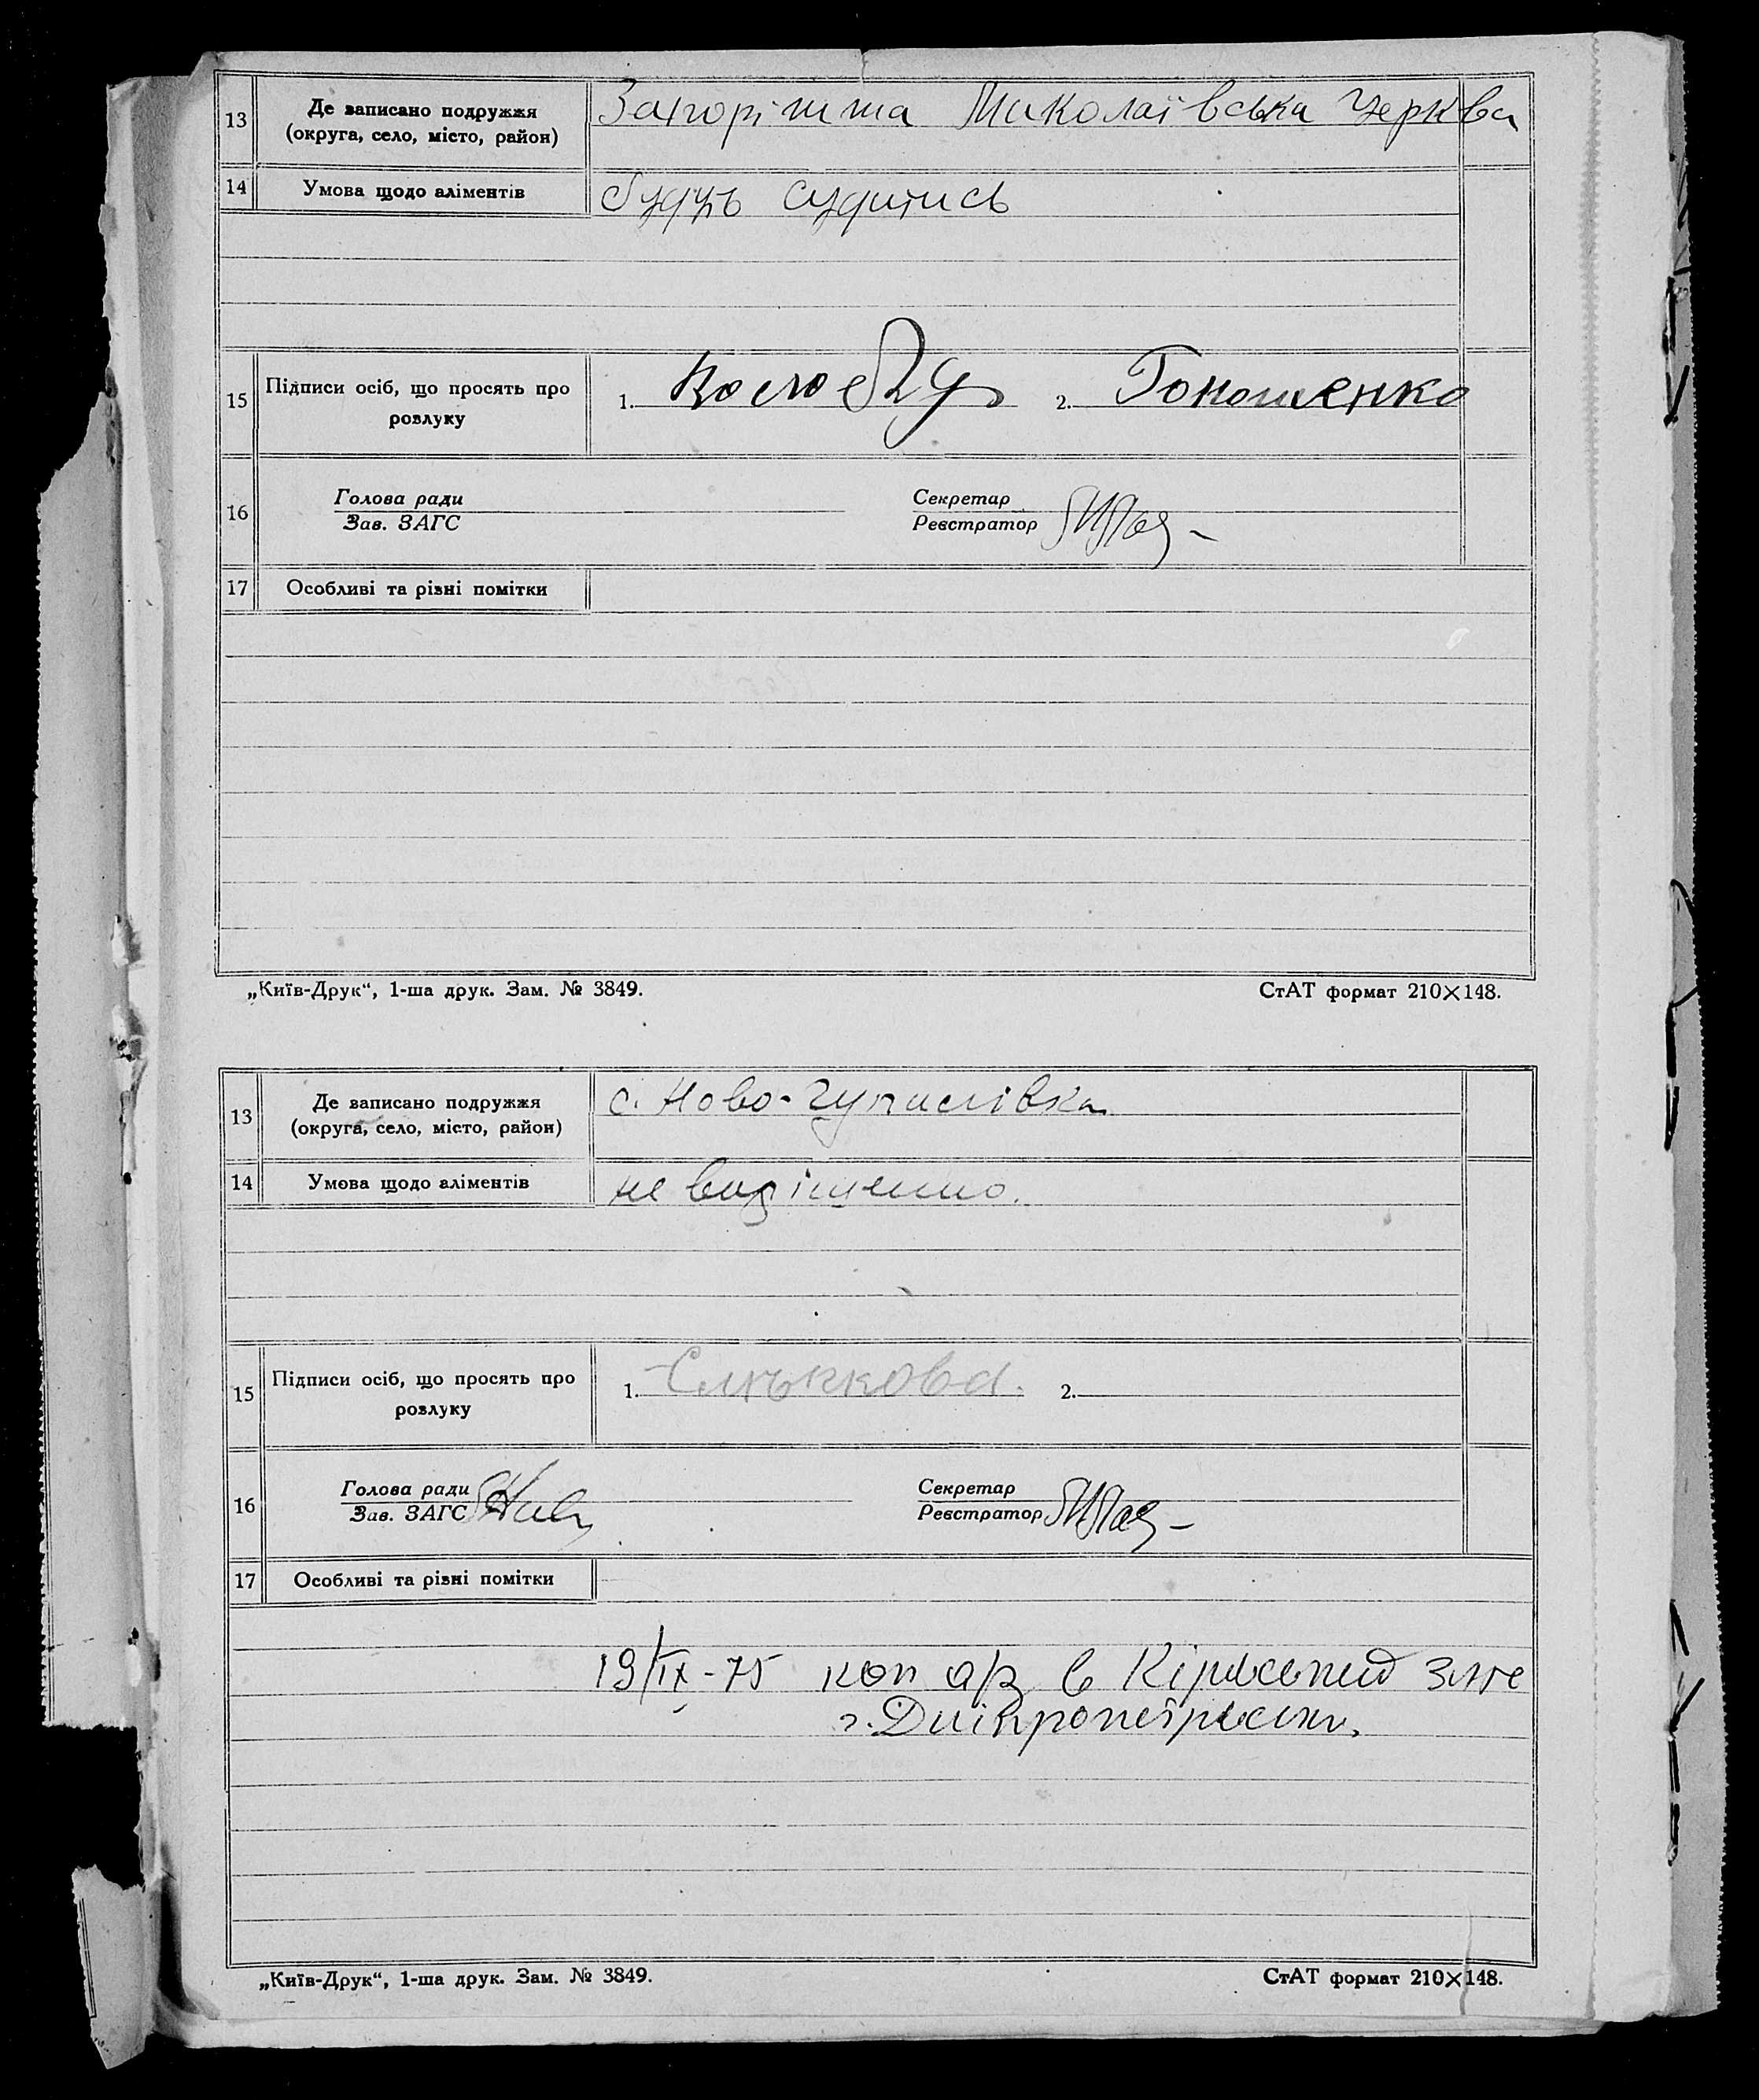 13 Де записано подружжя Миколаївська Церква
(округа, село, місто, район)
14 Умова щодо аліментів будуть судитись
15 Підписи осіб, що просять про 1. 2.
розлуку
16 Голова ради Секретар
Зав. ЗАГС Реєстратор
17 Особливі та різні помітки
„Київ-Друк“, 1-ша друк. Зам. № 3849. СтАТ формат 210×148.
13 Де записано подружжя с. Ново-
(округа, село, місто, район)
14 Умова щодо аліментів не вирішенно.
15 Підписи осіб, що просять про 1. 2.
розлуку
16 Голова ради Секретар
Зав. ЗАГС Реєстратор
17 Особливі та різні помітки
19/IX-75 коп а/з в
г. Дніпропетрівськ.
„Київ-Друк“, 1-ша друк. Зам. № 3849. СтАТ формат 210×148.